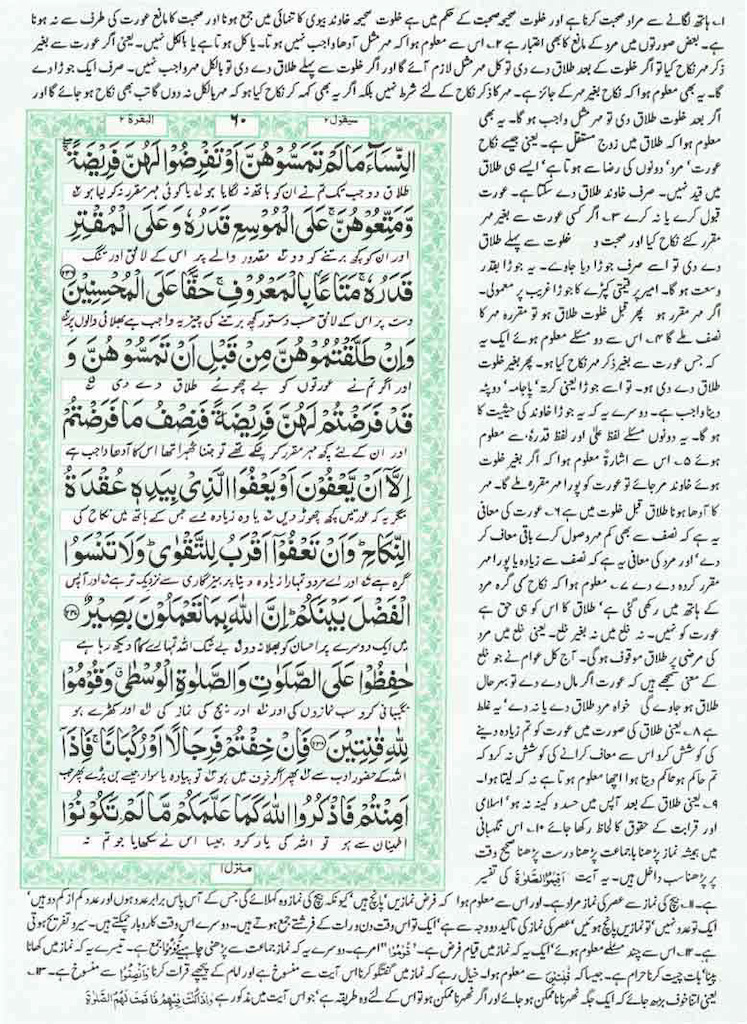 ۱۔ ہاتھ لگانے سے مراد صحبت کرنا ہے اور خلوت صحیحہ صحبت کے حکم میں ہے خلوت صحیحہ خاوند بیوی کا تنہائی میں جمع ہونا اور صحبت کا مانع عورت کی طرف سے نہ ہونا
ہے۔ بعض صورتوں میں مرد کے مانع کا بھی اعتبار ہے ۲۔ اس سے معلوم ہوا کہ مہر مثل آدھا واجب نہیں ہوتا۔ یا کل ہوتا ہے یا بالکل نہیں۔ یعنی اگر عورت سے بغیر
ذکر مہر نکاح کیا تو اگر خلوت کے بعد طلاق دے دی تو کل مہر مثل لازم آئے گا اور اگر خلوت سے پہلے طلاق دے دی تو بالکل مہر واجب نہیں۔ صرف ایک جوڑا دے
گا۔ یہ بھی معلوم ہوا کہ نکاح بغیر مہر کے جائز ہے۔ مہر کا ذکر نکاح کے لئے شرط نہیں بلکہ اگر یہ بھی کہہ کر نکاح کیا ہو کہ مہر بالکل نہ دوں گا تب بھی نکاح ہو جائے گا اور
اگر بعد خلوت طلاق دی تو مہر مثل واجب ہو گا۔ یہ بھی
معلوم ہوا کہ طلاق میں زوج مستقل ہے۔ یعنی جیسے نکاح
عورت' مرد' دونوں کی رضا سے ہوتا ہے' ایسے ہی طلاق
میں قید نہیں۔ صرف خاوند طلاق دے سکتا ہے۔ عورت
قبول کرے یا نہ کرے ۳۔ اگر کسی عورت سے بغیر مہر
مقرر کئے نکاح کیا اور صحبت و خلوت سے پہلے طلاق
دے دی تو اسے صرف جوڑا دیا جاوے۔ یہ جوڑا بقدر
وسعت ہو گا۔ امیر پر قیمتی کپڑے کا جوڑا غریب پر معمولی۔
اگر مہر مقرر ہو پھر قبل خلوت طلاق ہو تو مقررہ مہر کا
نصف ملے گا ۴۔ اس سے دو مسئلے معلوم ہوئے ایک یہ
کہ جس عورت سے بغیر ذکر مہر نکاح کیا ہو۔ پھر بغیر خلوت
طلاق دے دی ہو۔ تو اسے جوڑا یعنی کرتہ' پاجامہ' دوپٹہ
دینا واجب ہے۔ دوسرے یہ کہ یہ جوڑا خاوند کی حیثیت کا
ہو گا۔ یہ دونوں مسئلے لفظ علیٰ اور لفظ قدرہ سے معلوم
ہوئے ۵۔ اس سے اشارۃً معلوم ہوا کہ اگر بغیر خلوت
ہوئے خاوند مر جائے تو عورت کو پورا مہر مقررہ ملے گا۔ مہر
کا آدھا ہونا طلاق قبل خلوت میں ہے ۶۔ عورت کی معافی
یہ ہے کہ نصف سے بھی کم مہر وصول کرے باقی معاف کر
دے' اور مرد کی معافی یہ ہے کہ نصف سے زیادہ یا پورا مہر
مقرر کردہ دے دے ۷۔ معلوم ہوا کہ نکاح کی گرہ مرد
کے ہاتھ میں رکھی گئی ہے' طلاق کا اس کو ہی حق ہے
عورت کو نہیں۔ نہ خلع میں نہ بغیر خلع۔ یعنی خلع میں مرد
کی مرضی پر طلاق موقوف ہو گی۔ آج کل عوام نے جو خلع
کے معنی سمجھے ہیں کہ عورت اگر مال دے دے تو بہرحال
طلاق ہو جاوے گی خواہ مرد طلاق دے یا نہ دے' یہ غلط
ہے ۸۔ یعنی طلاق کی صورت میں عورت کو تم زیادہ دینے
کی کوشش کرو اس سے معاف کرانے کی کوشش نہ کرو کہ
تم حاکم ہو حاکم دیتا ہوا اچھا معلوم ہوتا ہے نہ کہ لیتا ہوا۔
۹۔ یعنی طلاق کے بعد آپس میں حسد و کینہ نہ ہو' اسلامی
اور قرابت کے حقوق کا لحاظ رکھا جائے ۱۰۔ اس نگہبانی
میں ہمیشہ نماز پڑھنا باجماعت پڑھنا درست پڑھنا صحیح وقت
پر پڑھنا سب داخل ہیں۔ یہ آیت اَقِیْمُوا الصَّلٰوۃَ کی تفسیر
سیقول ۲ ۶۰ البقرۃ ۲
النِّسَآءَ مَا لَمْ تَمَسُّوْهُنَّ اَوْ تَفْرِضُوْا لَهُنَّ فَرِیْضَةً
طلاق دو جب تک تم نے ان کو ہاتھ نہ لگایا ہو یا کوئی مہر مقرر نہ کر لیا ہو
وَّمَتِّعُوْهُنَّ عَلَى الْمُوْسِعِ قَدَرُهٗ وَعَلَى الْمُقْتِرِ
اور ان کو کچھ برتنے کو دو مقدور والے پر اس کے لائق اور تنگ
قَدَرُهٗ مَتَاعًۢا بِالْمَعْرُوْفِ حَقًّا عَلَى الْمُحْسِنِیْنَ ۲۳۶
دست پر اس کے لائق حسب دستور کچھ برتنے کی چیز یہ واجب ہے بھلائی والوں پر
وَاِنْ طَلَّقْتُمُوْهُنَّ مِنْ قَبْلِ اَنْ تَمَسُّوْهُنَّ وَ
اور اگر تم نے عورتوں کو بے چھوئے طلاق دے دی
قَدْ فَرَضْتُمْ لَهُنَّ فَرِیْضَةً فَنِصْفُ مَا فَرَضْتُمْ
اور ان کے لئے کچھ مہر مقرر کر چکے تھے تو جتنا ٹھہرا تھا اس کا آدھا واجب ہے
اِلَّاۤ اَنْ یَّعْفُوْنَ اَوْ یَعْفُوَا الَّذِیْ بِیَدِهٖ عُقْدَةُ
مگر یہ کہ عورتیں کچھ چھوڑ دیں یا وہ زیادہ دے جس کے ہاتھ میں نکاح کی
النِّكَاحِ وَاَنْ تَعْفُوْۤا اَقْرَبُ لِلتَّقْوٰى وَلَا تَنْسَوُا
گرہ ہے اور اے مردو تمہارا زیادہ دینا پرہیزگاری سے نزدیک تر ہے اور آپس
الْفَضْلَ بَیْنَكُمْ اِنَّ اللّٰهَ بِمَا تَعْمَلُوْنَ بَصِیْرٌ ۲۳۷
میں ایک دوسرے پر احسان کو بھلا نہ دو بے شک اللہ تمہارے کام دیکھ رہا ہے
حٰفِظُوْا عَلَى الصَّلَوٰتِ وَالصَّلٰوةِ الْوُسْطٰى وَقُوْمُوْا
نگہبانی کرو سب نمازوں کی اور بیچ کی نماز کی اور کھڑے ہو
لِلّٰهِ قٰنِتِیْنَ ۲۳۸ فَاِنْ خِفْتُمْ فَرِجَالًا اَوْ رُكْبَانًا فَاِذَاۤ
اللہ کے حضور ادب سے پھر اگر خوف میں ہو تو پیادہ یا سوار جیسے بن پڑے پھر جب
اَمِنْتُمْ فَاذْكُرُوا اللّٰهَ كَمَا عَلَّمَكُمْ مَّا لَمْ تَكُوْنُوْا
اطمینان سے ہو تو اللہ کی یاد کرو جیسا اس نے سکھایا جو تم نہ
منزل ۱
ہے۔ ۱۱۔ بیچ کی نماز سے عصر کی نماز مراد ہے۔ اور اس سے معلوم ہوا کہ فرض نمازیں پانچ ہیں' کیونکہ بیچ کی نماز وہ کہلائے گی جس کے آس پاس برابر عدد ہوں اور عدد کم از کم دو ہیں'
ایک تو عدد نہیں' تو نمازیں پانچ ہوئیں' عصر کی نماز کی تاکید دو وجہ سے ہے' ایک تو اس وقت دن و رات کے فرشتے جمع ہوتے ہیں۔ دوسرے اس وقت کاروبار چمکتے ہیں۔ سیر و تفریح ہوتی
ہے۔ ۱۲۔ اس سے چند مسئلے معلوم ہوئے' ایک یہ کہ نماز میں قیام فرض ہے۔ 'قُوْمُوْا' امر ہے۔ دوسرے یہ کہ نماز جماعت سے پڑھنی چاہیے قُوْمُوْا جمع ہے۔ تیسرے یہ کہ نماز میں کھانا
پینا' بات چیت کرنا حرام ہے۔ جیسا کہ قٰنِتِیْنَ سے معلوم ہوا۔ خیال رہے کہ نماز میں گفتگو کرنا اس آیت سے منسوخ ہے اور امام کے پیچھے قرات کرنا وَاَنْصِتُوْا سے منسوخ ہے۔ ۱۳۔
یعنی اتنا خوف بڑھ جائے کہ ایک جگہ ٹھہرنا ناممکن ہو جائے اور اگر ٹھہرنا ممکن ہو تو اس کے لئے وہ طریقہ ہے' جو اس آیت میں مذکور ہے وَاِذَا كُنْتَ فِیْهِمْ فَاَقَمْتَ لَهُمُ الصَّلٰوةَ